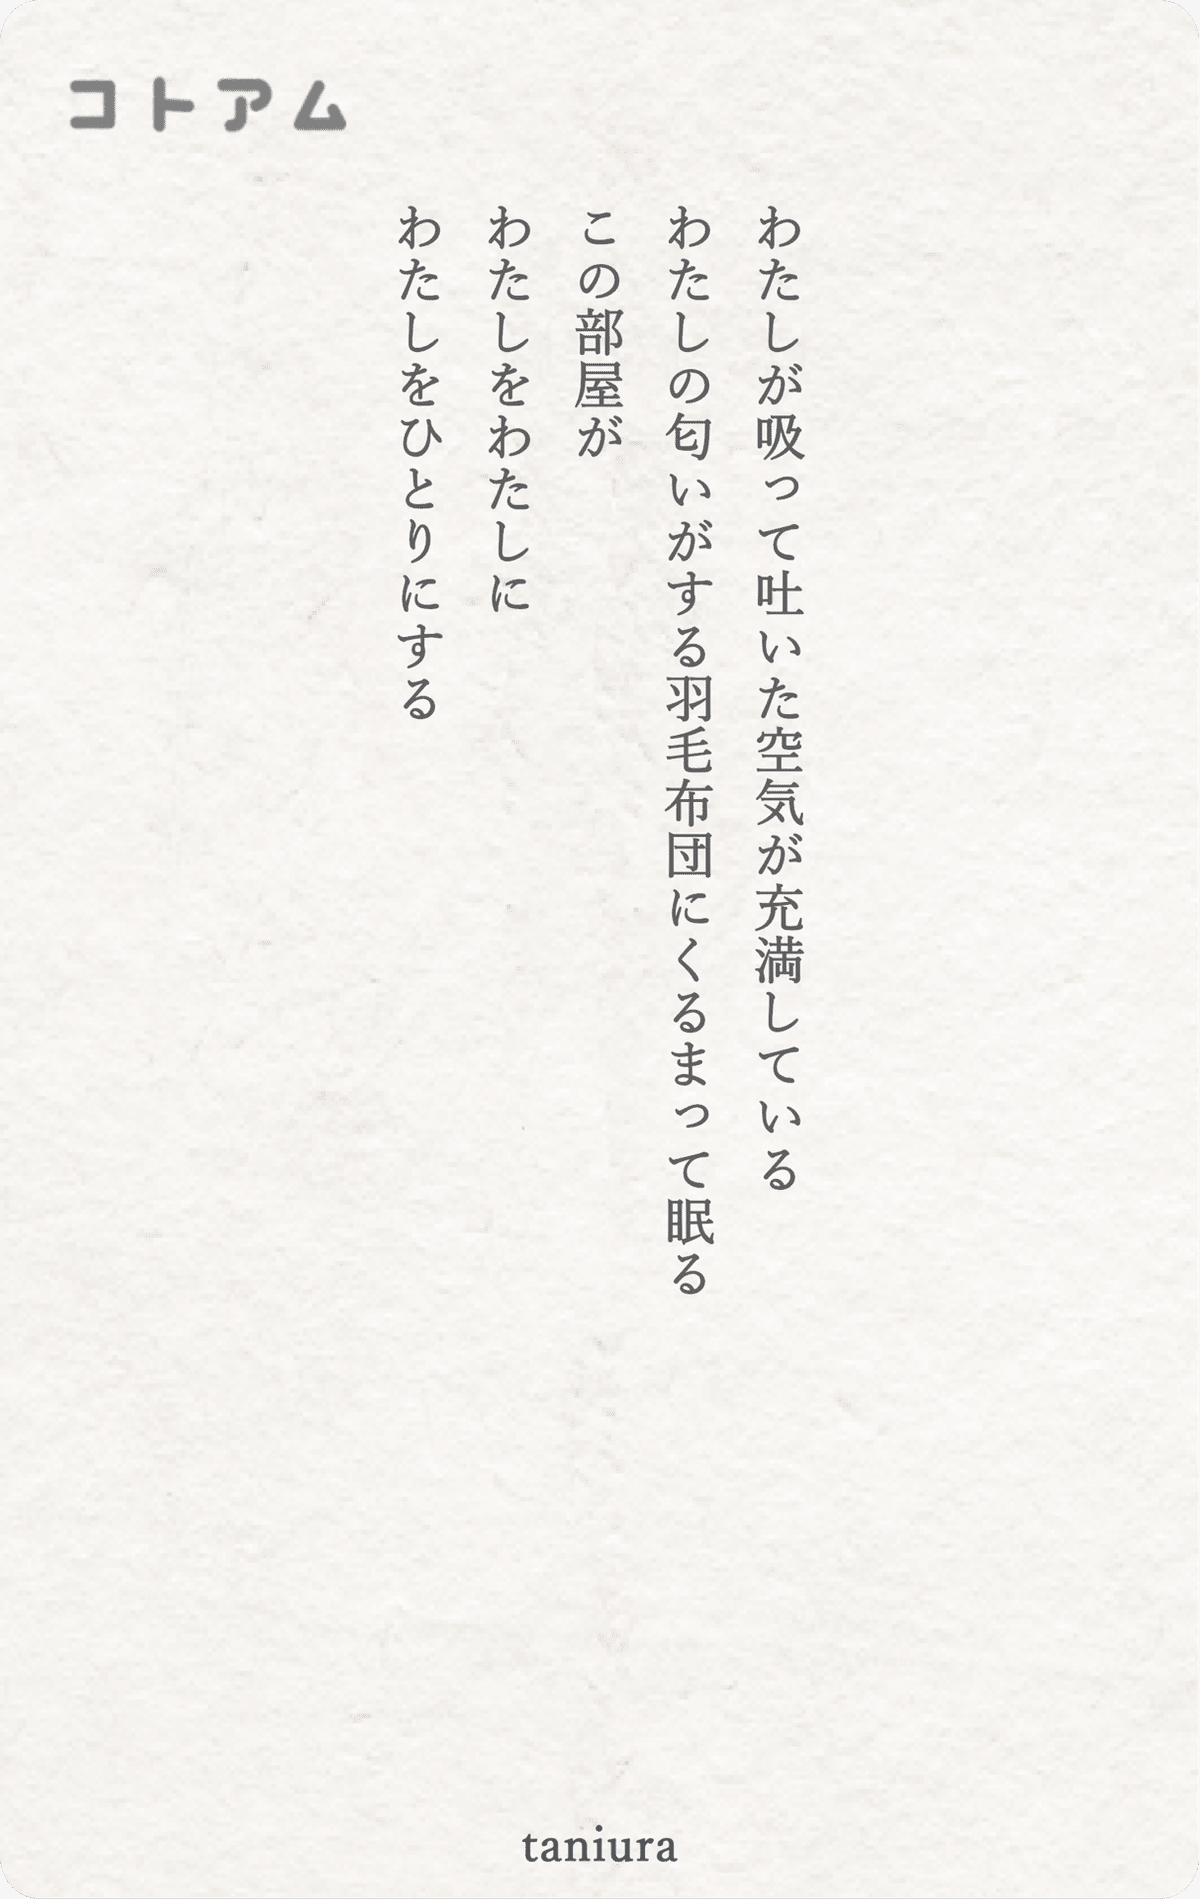 コトアム
わたしが吸って吐いた空気が充満している
わたしの匂いがする羽毛布団にくるまって眠る
この部屋が
わたしをわたしに
わたしをひとりにする
taniura